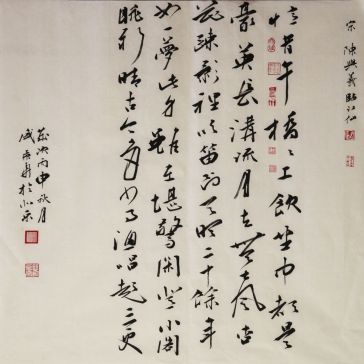 宋 陳與義 臨江仙
憶昔午橋〻上飲坐中都是
豪英長溝流月去無聲杏
花疎影裡吹笛到天明二十餘年
如一夢此身雖在堪驚閒登小閣
眺新晴古今多少事漁唱起三更
歲次丙申秋月
於北京